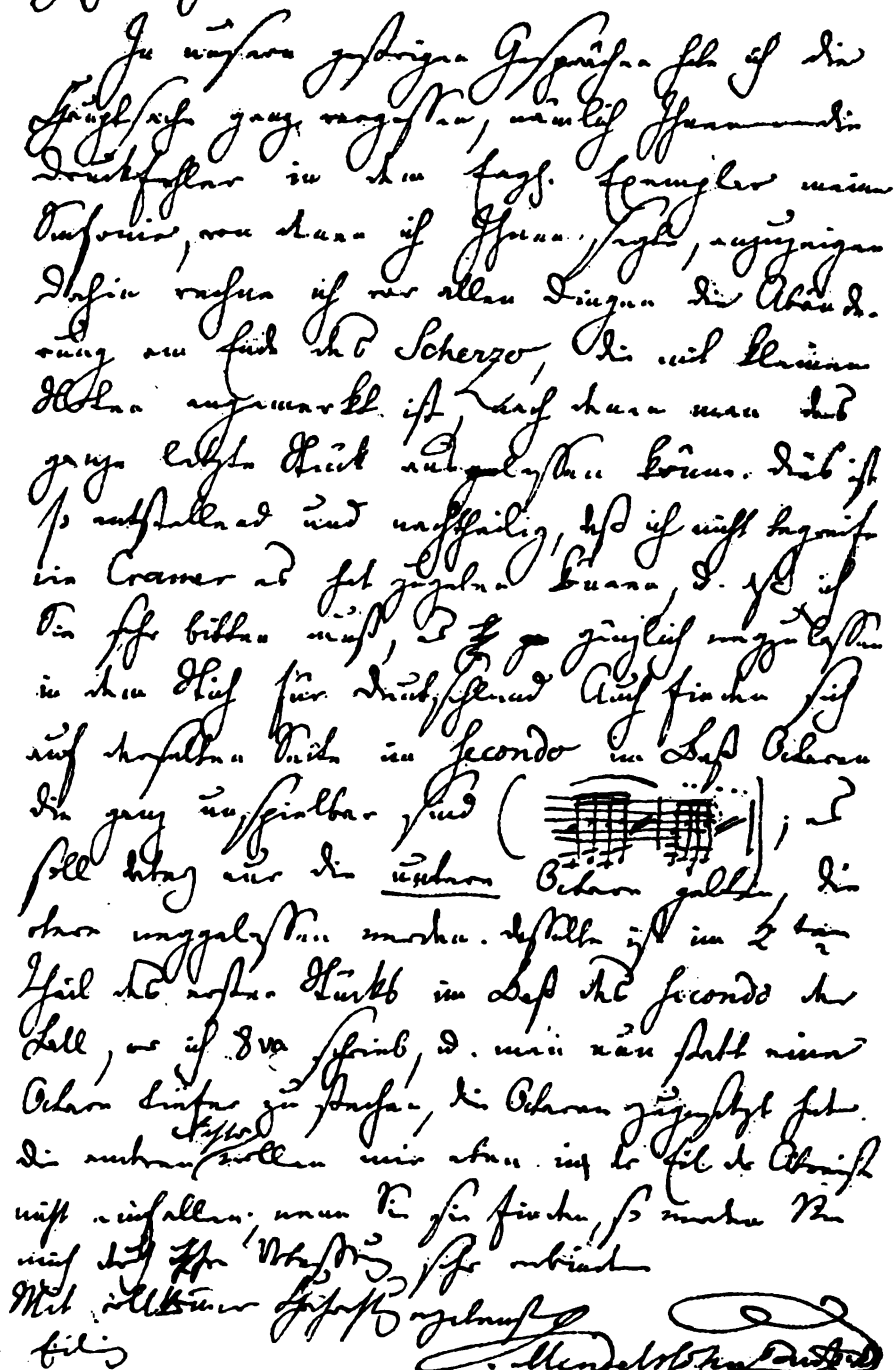 In unsern gestrigen Gesprächen habe ich die
Hauptsache ganz vergessen, nämlich Ihnen die
Druckfehler in dem Engl. Exemplar meiner
Sinfonie, von denen ich Ihnen sagte, anzuzeigen
Dahin rechne ich vor allen Dingen die Abände-
rung am Ende des Scherzo, die mit kleinen
Noten angemerkt ist, nach denen man das
ganze letzte Stück auslassen könne. Dies ist
so entstellend und nachtheilig, daß ich nicht begreife
wie Cramer es hat zugeben können, u. daß ich
Sie sehr bitten muß, es gänzlich wegzulassen
in dem Stich für Deutschland Auch finden sich
auf derselben Seite im Secondo im Baß Octaven
die ganz unspielbar sind ( ) ; es
soll nur die untern Octave gelten, die
obere weggelassen werden. Dasselbe ist im 2 ten
Theil des ersten Stücks im Baß des Secondo der
Fall, wo ich 8va schrieb, u. man nun statt eine
Octave tiefer zu stechen, die Octaven zugesetzt hat.
die andren Fehler wollen mir eben in der Eil der Abreise
nicht einfallen; wenn Sie sie finden, so werden Sie
mich durch Verbesserung sehr verbinden
Mit vollkommner Hochachtung ergebenst
Eilig
Mendelssohn Bartholdy